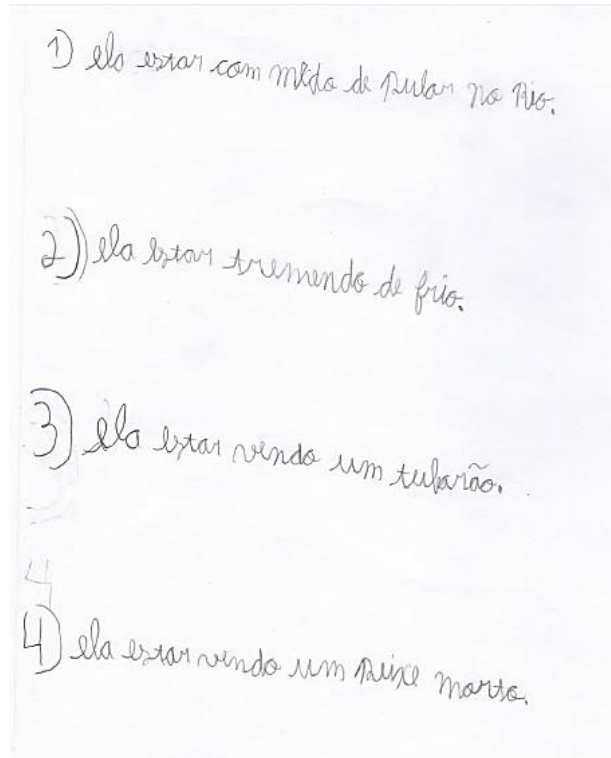 1) ela estar com medo de pular no Rio.
2) ela estar tremendo de frio.
3) ela estar vendo um tubarão.
4
4) ela estar vendo um peixe morto.